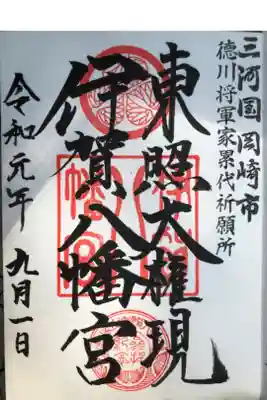 三河国 岡崎市
徳川将軍家累代祈願所
東照大権現
伊賀八幡宮
令和元年 九月一日